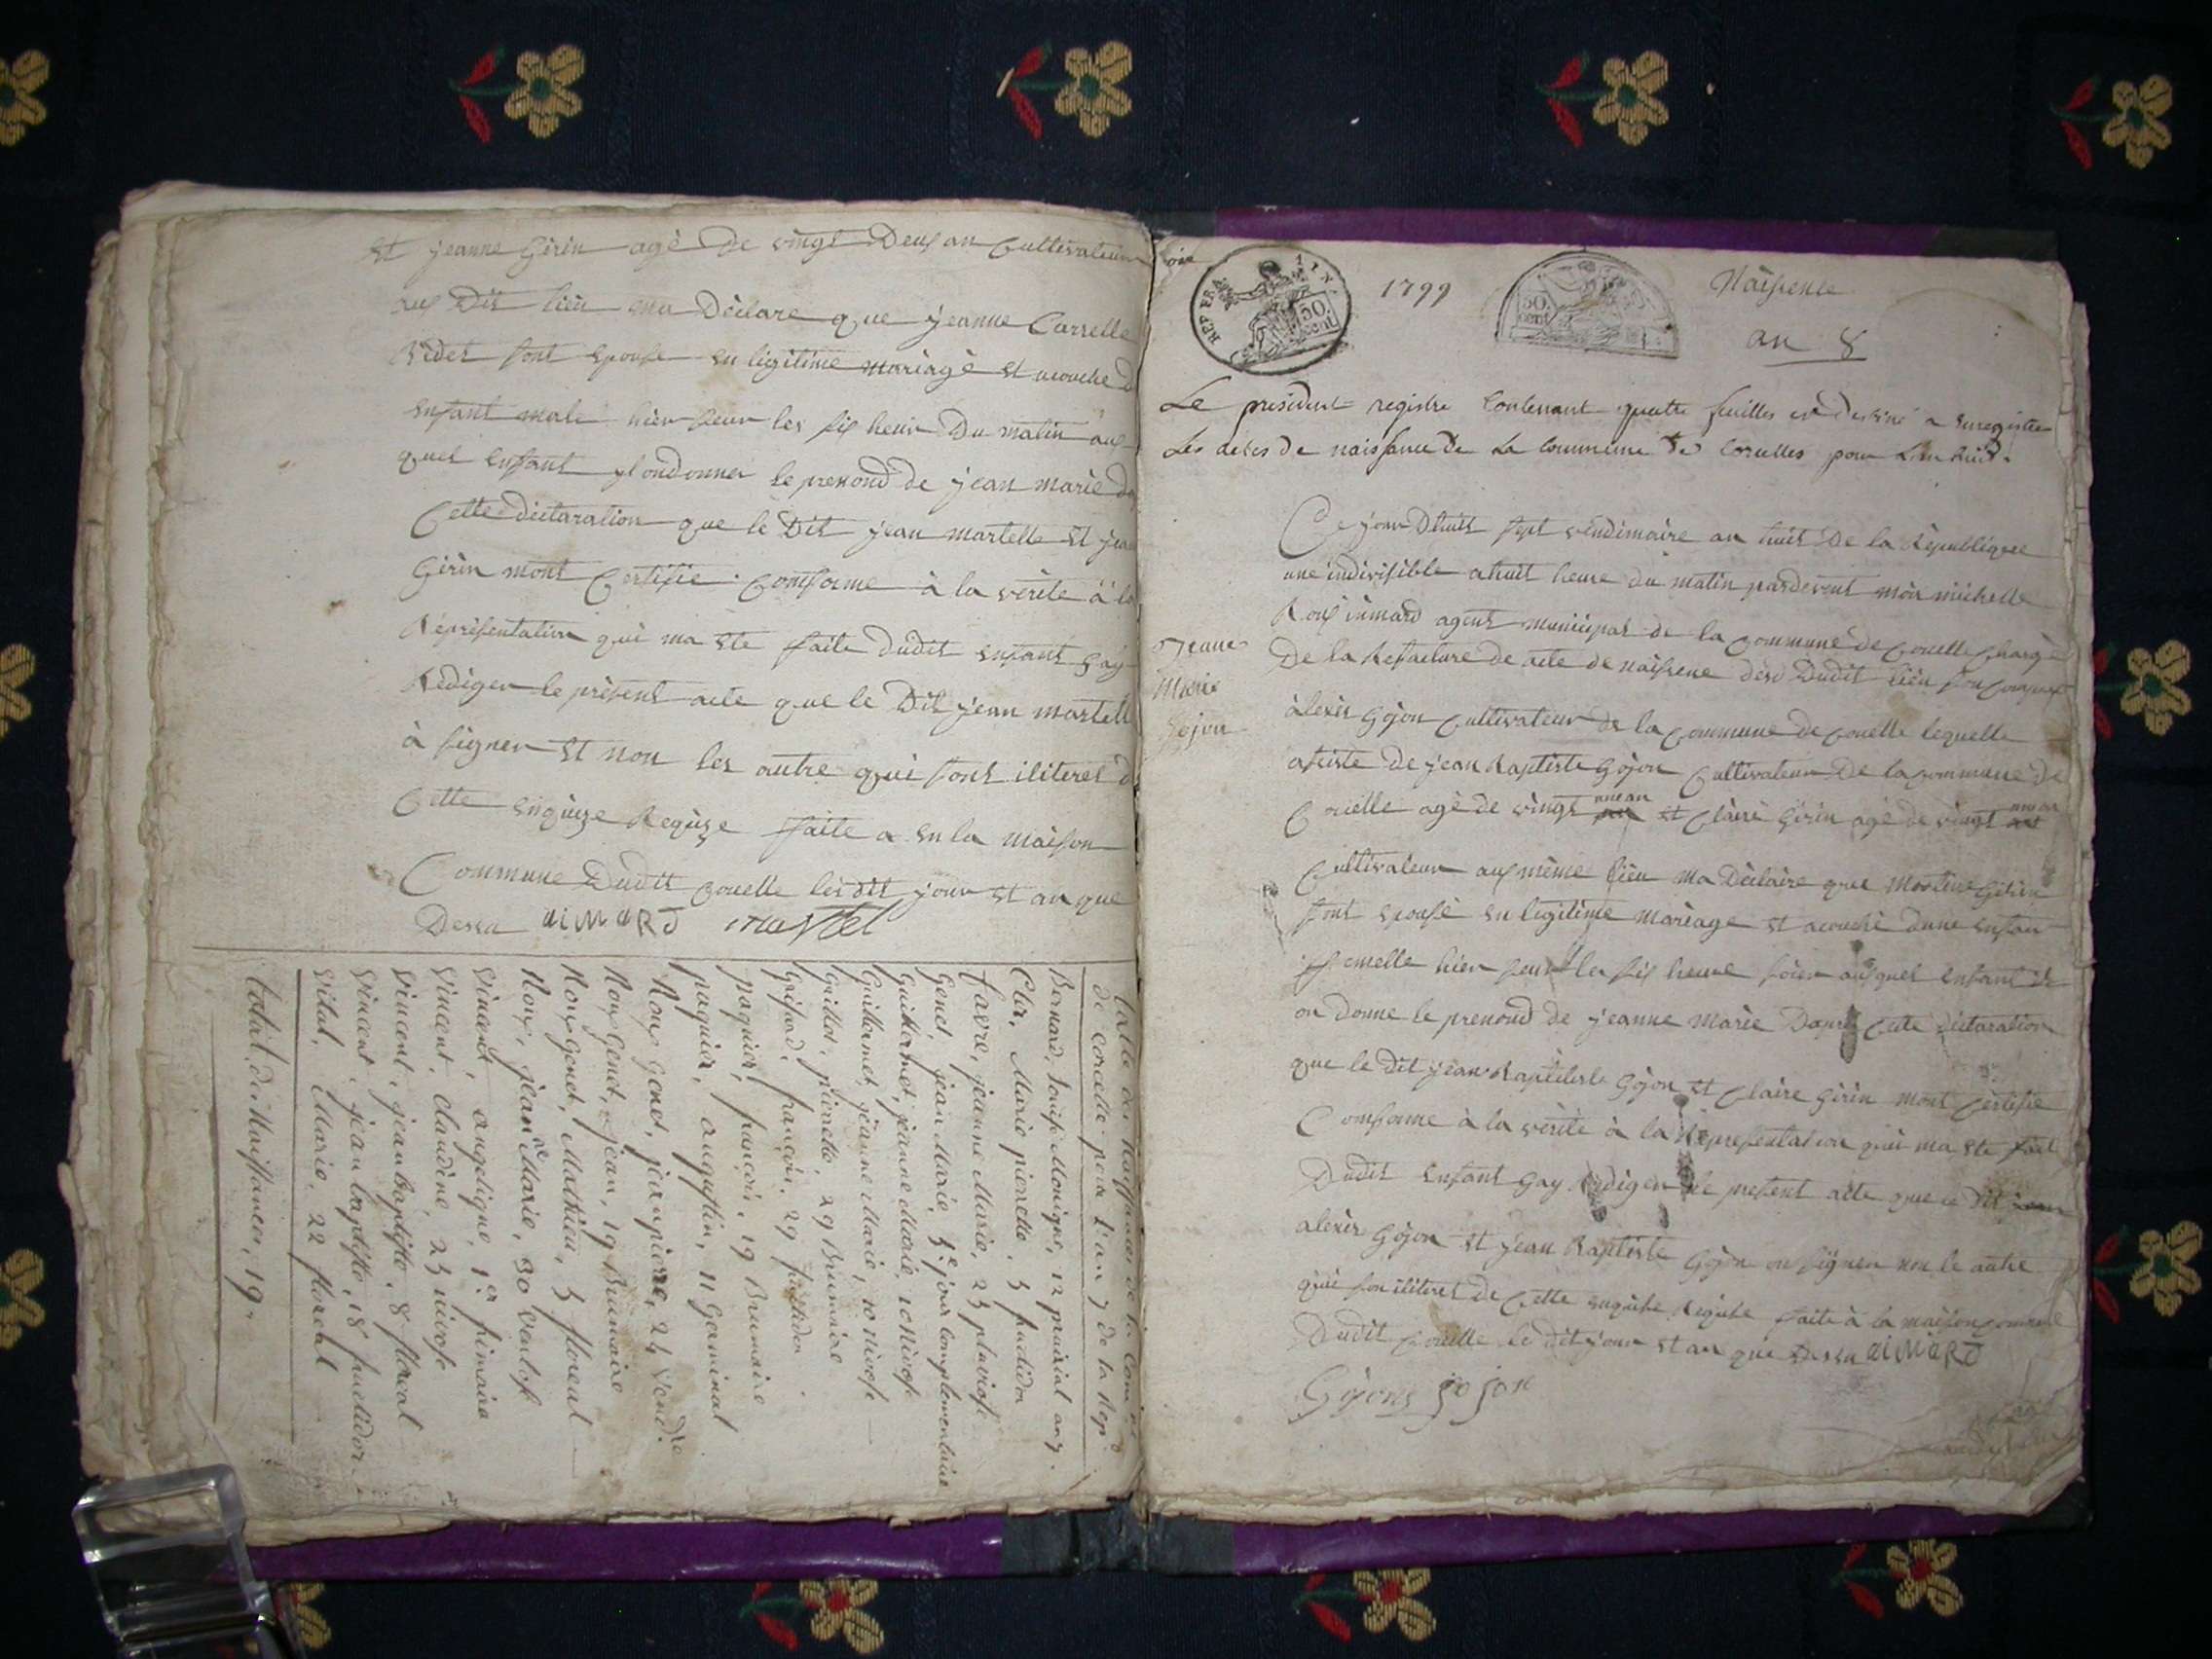 et jeanne Girin agé de vingt Deux an Cultivateur
aux Dit lieu ma Déclare que jeanne Carrelle
sont epouse en legitime mariage et acouche d
enfant male hier seur les six heur Du matin aux
quel enfant il on donner le prenond de jean marie
Cette déclaration que le Dit jean martelle et jea
Girin mont Certifie Comforme à la vérité à la
Représentation qui ma ete faite dudit enfant Gay
Rédiger le présent acte que le Dit jean martelle
à signer et non les autre qui sont iliteret d
Cette enquize Requize faite a en la maison
Commune Dudit les dit jour et an que
Dessu aiMaRD martel
table des Naissances de la Com
de Corcelle pour l'an 7 de la Rep
Bernard, Louise Monique, 12 prairial an 7.
Cler, Marie pierrette, 5 fructidor
favre, jeanne Marie, 25 pluviose
Genet, jean Marie, 5e jour complementaire
Guillermet, jeanne Marie, 10 Nivose
Guillermet, jeanne Marie, 10 Nivose
Guillot, pierrette, 29 Brumaire
francois, 29
paquier, francois, 19 Brumaire
paquier, augustin, 11 Germinal
Roux Genet, jean pierre, 24 Vendre
Roux Genet, jean, 19 Brumaire
Roux Genet, Mathieu, 5 floreal
Roux, jean Marie, 30 Ventose
Vincent, angelique, 1er frimaire
Vincent, claudine, 25 nivose
Vincent, jean baptiste, 8 floreal
Vincent, jean baptiste, 18 fructidor
Vital, Marie, 22 floreal
total des Naissances, 19.
REP. FRA.
50 cent
1799
50. cent
Naissence
an 8
Le president registre Contenant quatre feuilles est destiné a enregistrer
Les actes de naissance de la Commune de Corcelles pour L'an huit.
Jeanne
Marie
Gojon
Ce jour Dhuit sept vendimaire an huit De la Republique
une indivisible a huit heure du matin pardevent moi michelle
Roux aimard agent municipal de la Commune de Couelle Chargé
De la Refacture de acte de naissene Dudit lieu
alexis Gojon Cultivateur de la Commune de Couelle lequelle
asiste de jean Baptiste Gojon Cultivateur De la Commune De
Couelle agé de vingt une an et Claire Girin agé de vingt une an
Cultivateur aux même lieu ma Déclaire que Girin
sont epousé en legitime mariage et acouché dune enfan
femelle hier seur les six heure soir auxquel enfant il
on donne le prenond de jeanne marie Dapre Cette Déclaration
que le Dit jean Baptiste Gojon et Claire Girin mont Certifie
Comforme à la vérité à la Representation qui ma ete fait
Dudit enfant Gay Rediger le present acte que ce Dit
alexis Gojon et jean Baptiste Gojon on signer non le autre
qui son iliteret de Cette enquise Requise faite à la maison commune
Dudit Couelle le dit jour et an que Dessu aiMaRD
Gojon gojon